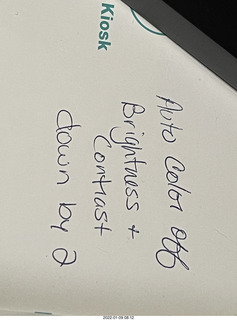 Kiosk
Auto Color off
Brightness +
Contrast
down by 2
2022-01-08 08:12